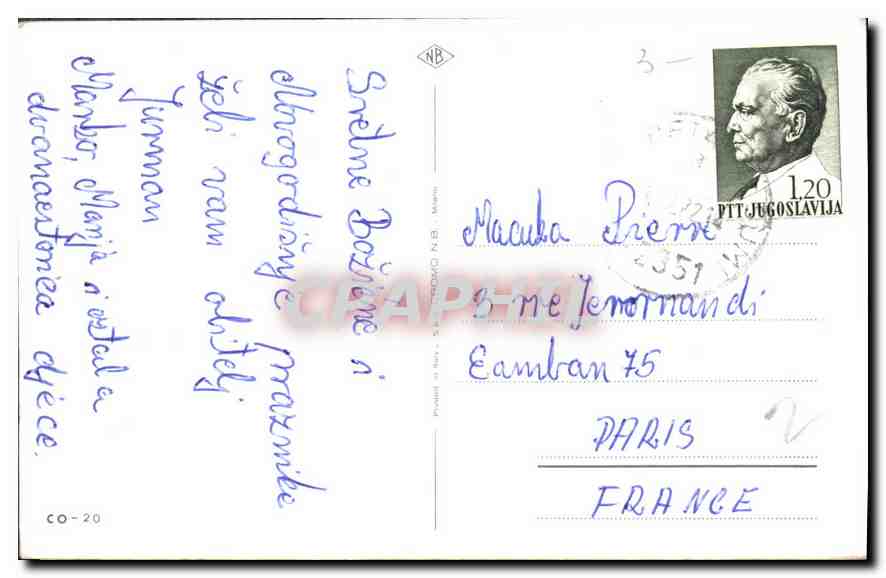 Sretne Božićne i
Novogodišnje praznike
želi vam obitelj
Jurman
Marko, Marija i ostala
dvanaestorica djece.
CO - 20
NB
Printed in Italy - S.A. CROMO N.B. - Milano
3 -
1,20
PTT·JUGOSLAVIJA
52351
Macuka Pierre
3 rue
75
PARIS
FRANCE
2
CPAPHIL